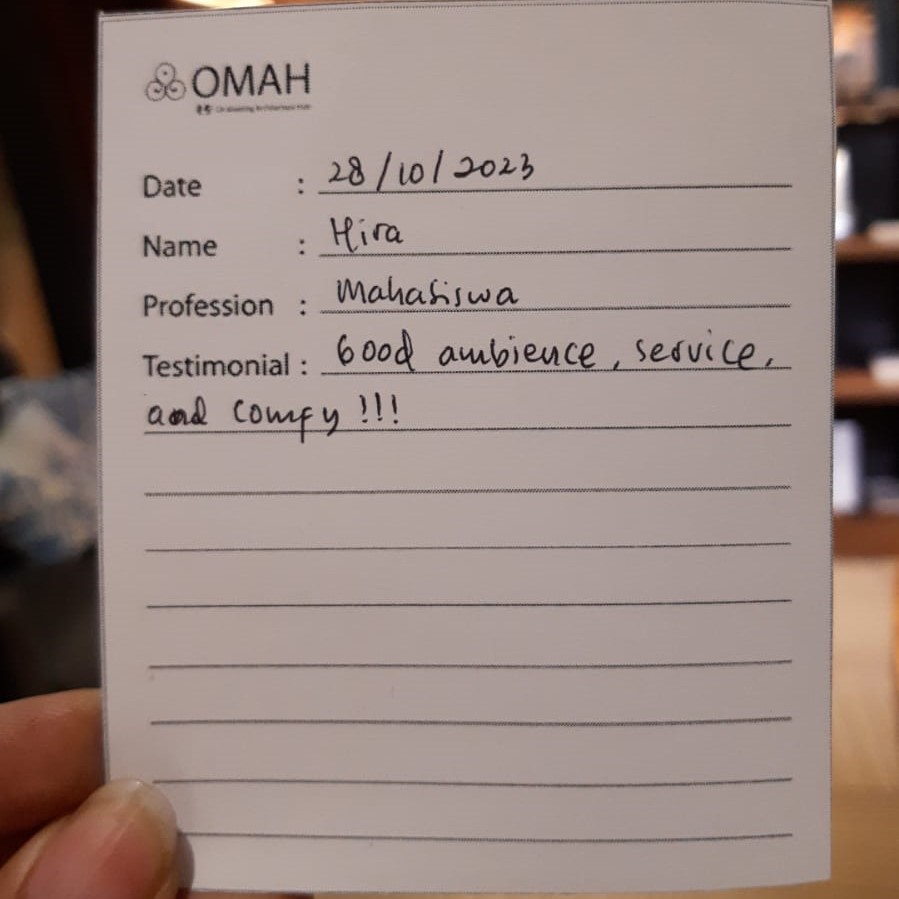 OMAH
Date : 28/10/2023
Name : Hira
Profession : Mahasiswa
Testimonial : Good ambience, service,
and comfy !!!